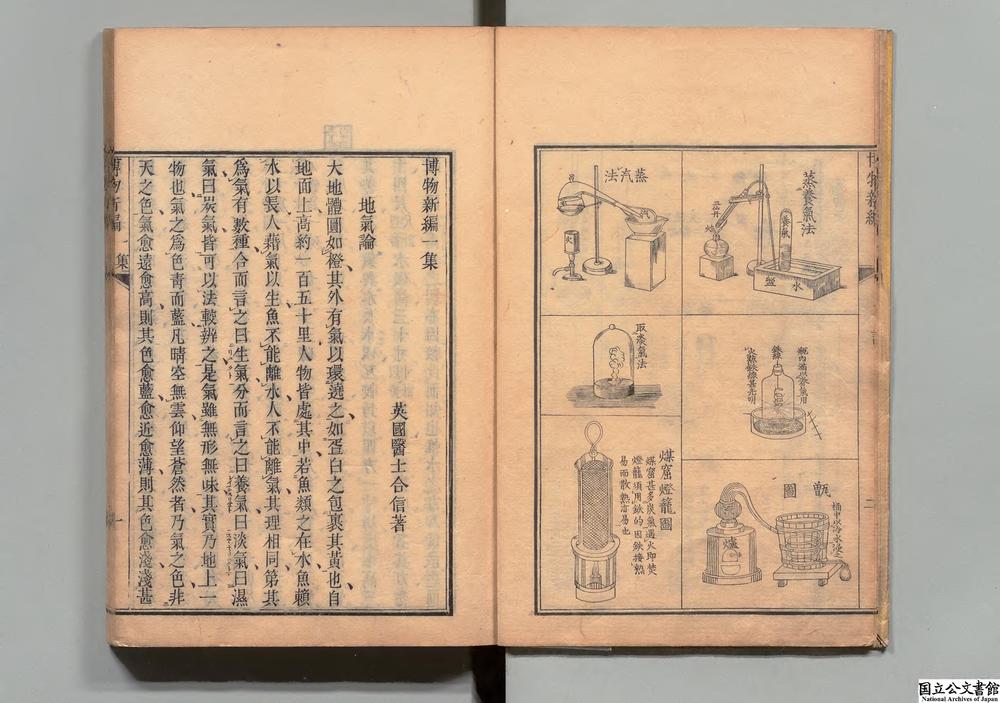 博物新編
蒸養氣法
養氣
水
盤
蒸汽法
汽
火
瓶內滿以養氣用
鐵線
火點鐵線甚光明
甑圖
桶中以冷水浸之
爐
煤窟燈籠圖
煤窟甚多炭氣遇火即焚
燈籠須用鐵的因鐵接熱
易而散熱亦易也
博物新編一集
英國醫士合信著
地氣論
大地體圓如橙其外有氣以環遶之如蛋白之包裹其黃也自
地面上高約一百五十里人物皆處其中若魚類之在水魚賴
水以長人藉氣以生魚不能離水人不能離氣其理相同第其
為氣有數種合而言之曰生氣分而言之曰養氣曰淡氣曰濕
氣曰炭氣皆可以法較辨之是氣雖無形無味其實乃地上一
物也氣之為色青而藍凡晴空無雲仰望蒼然者乃氣之色非
天之色氣愈遠愈高則其色愈藍愈近愈薄則其色愈淺淺甚
博物新編
一集
一
国立公文書館
National Archives of Japan